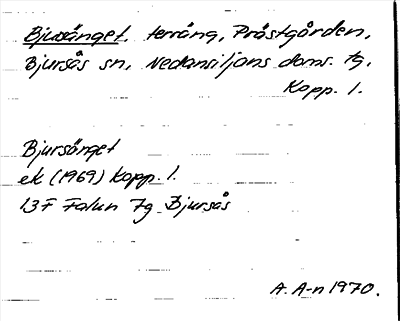 Bjusänget, terräng, Prästgården,
Bjursås sn, Nedansiljans doms. tg,
Kopp. l.
Bjursänget
ek (1969) Kopp. l.
13F Falun 7g Bjursås
A. A-n 1970.